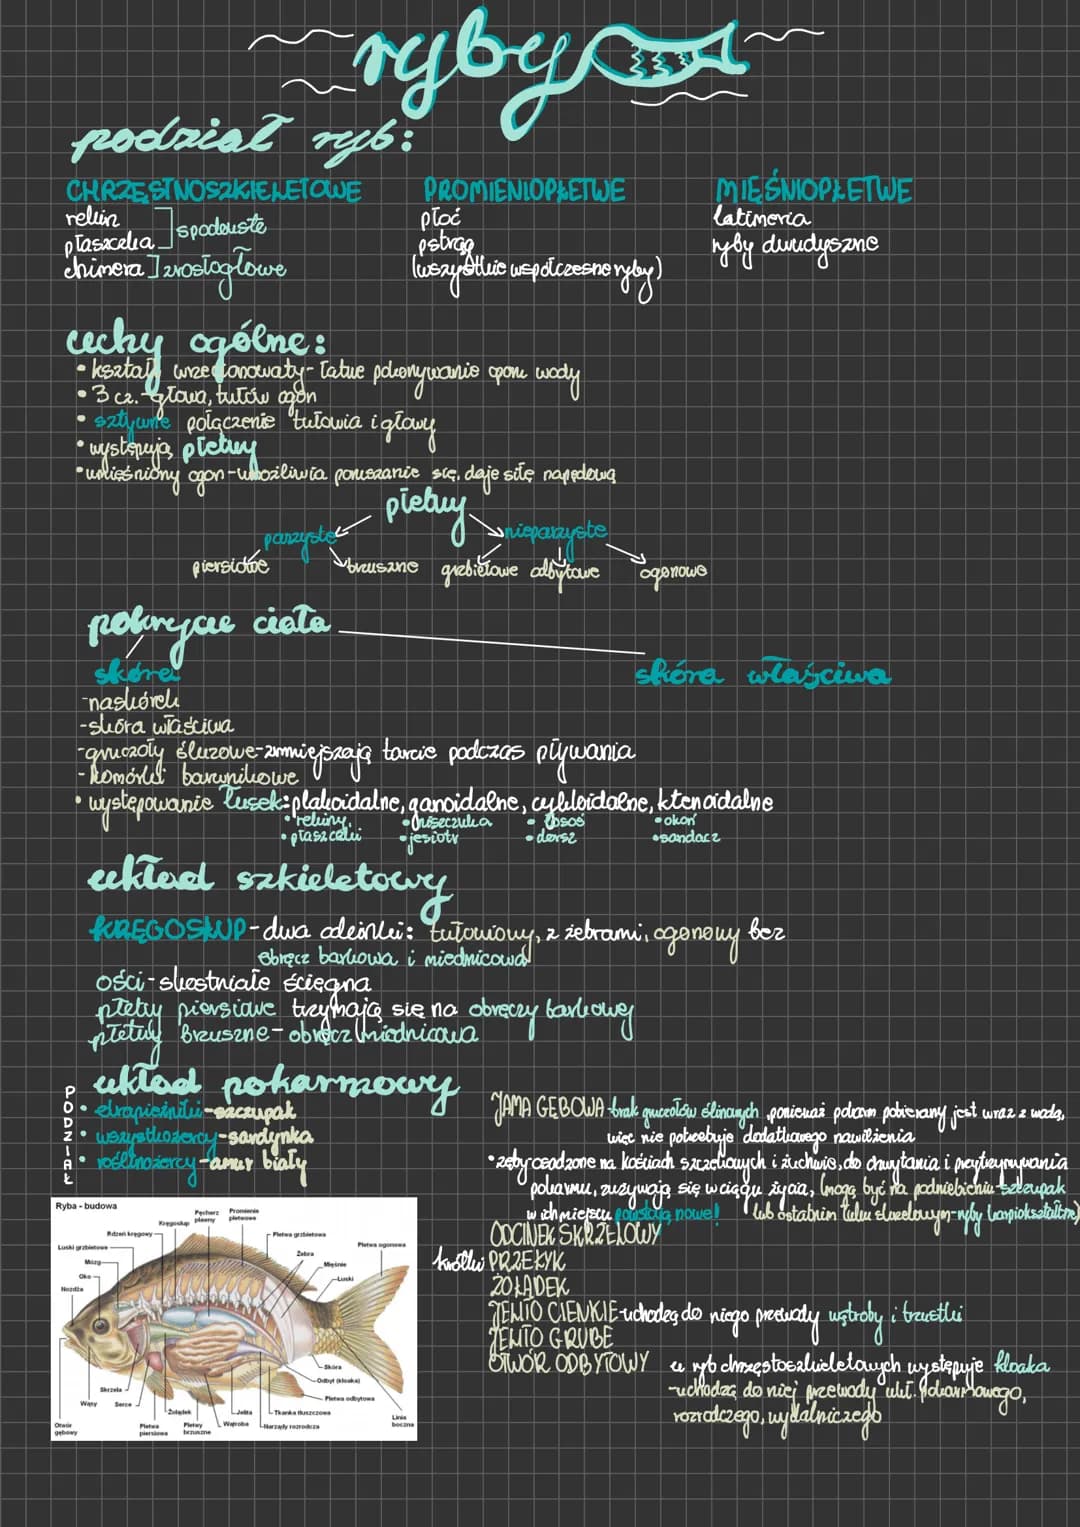 ryby
podział ryb:
CHRZĘSTNOSZKIELETOWE
rekin
płaszczka
spodouste
chimera
zrosłogłowe
PROMIENIOPŁETWE
płoć
pstrąg
(wszystkie współczesne ryby)
MIĘŚNIOPŁETWE
latimeria
ryby dwudyszne
cechy ogólne:
• kształt wrzecionowaty - łatwe pokonywanie oporu wody
• 3 cz. - głowa, tułów ogon
• sztywne połączenie tułowia i głowy
• występują płetwy
• umięśniony ogon - umożliwia poruszanie się, daje siłę napędową
płetwy
parzyste
nieparzyste
piersiowe
brzuszne
grzbietowe
odbytowe
ogonowe
pokrycie ciała
skóra
skóra właściwa
- naskórek
- skóra właściwa
- gruczoły śluzowe - zmniejszają tarcie podczas pływania
- komórki barwnikowe
• występowanie łusek: plakoidalne, ganoidalne, cykloidalne, ktenoidalne
• rekiny,
• płaszczki
• niszczuka
• jesiotr
• łosoś
• dorsz
• okoń
• sandacz
układ szkieletowy
KRĘGOSŁUP - dwa odcinki: tułowiowy, z żebrami, ogonowy bez
obręcz barkowa i miednicowa
ości - skostniałe ścięgna
płetwy piersiowe trzymają się na obręczy barkowej
płetwy brzuszne - obręcz miednicowa
układ pokarmowy
PODZIAŁ
• drapieżniki - szczupak
• wszystkożercy - sardynka
• roślinożercy - amur biały
JAMA GĘBOWA - brak gruczołów ślinowych, ponieważ pokarm pobierany jest wraz z wodą,
więc nie potrzebuje dodatkowego nawilżenia
• zęby osadzone na kościach szczękowych i żuchwie, do chwytania i przytrzymywania
pokarmu, zużywają się w ciągu życia, (mogą być na podniebieniu - szczupak
w ich miejscu powstają nowe! lub ostatnim łuku skrzelowym - ryby karpiokształtne)
ODCINEK SKRZELOWY
krótki PRZEŁYK
ŻOŁĄDEK
JELITO CIENKIE - uchodzą do niego przewody wątroby i trzustki
JELITO GRUBE
OTWÓR ODBYTOWY
u ryb chrzęstoszkieletowych występuje kloaka
- uchodzą do niej przewody ukł. pokarmowego,
rozrodczego, wydalniczego
Ryba - budowa
Pęcherz pławny
Promienie płetwowe
Kręgosłup
Rdzeń kręgowy
Płetwa grzbietowa
Łuski grzbietowe
Płetwa ogonowa
Żebra
Mózg
Mięśnie
Oko
Łuski
Nozdża
Skóra
Odbyt (kloaka)
Skrzela
Płetwa odbytowa
Wąsy
Serce
Żołądek
Jelita
Tkanka tłuszczowa
Linia boczna
Otwór gębowy
Płetwa piersiowa
Płetwy brzuszne
Wątroba
Narządy rozrodcze